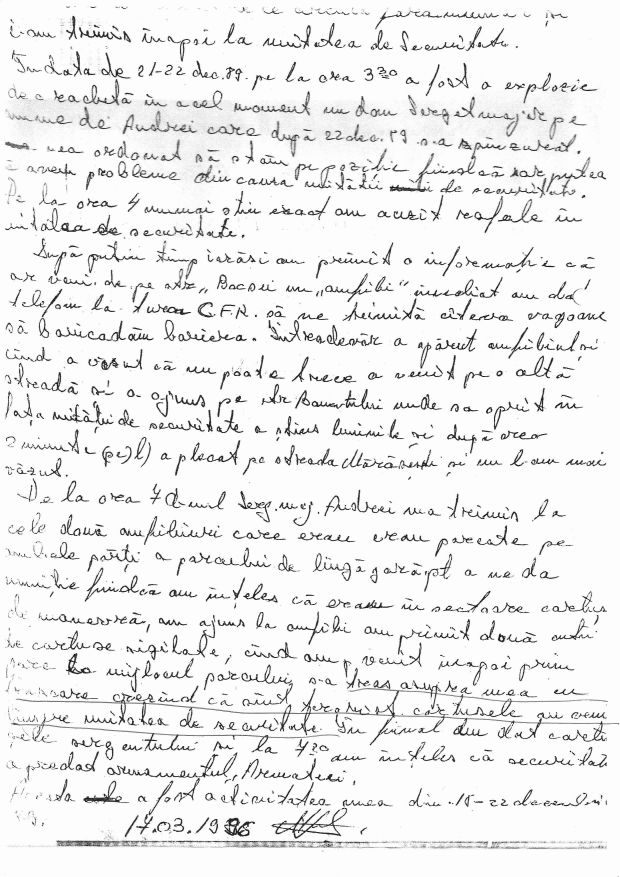 i-am trimis înapoi la unitatea de Securitate.
În data de 21-22 dec. 89. pe la ora 3 30 a fost o explozie
de o rachetă în acel moment un dom Sergetmajor pe
nume de Andrei care după 22 dec. 89 s-a spînzurat.
ordonat să stăm pe poziție fiindcă s-ar putea
a avem probleme din cauza unității de securitate.
Pe la ora 4 numai știu exact am auzit rafale în
unitatea de securitate.
După puțin timp iarăși am primit o informație că
ar veni de pe str. „Bacoei un „amfibi" imediat am dat
telefon la C.F.R. să ne trimită cîteva vagoane
să Baricadăm bariera. Întradevăr a apărut amfibiul și
cînd a văsut că nu poate trece a venit pe o altă
stradă și a ajuns pe str. unde sa oprit în
fața unități de securitate a stins luminile și după vreo
2 minute (pe)l) a plecat pe strada Mărăsești și nu l-am mai
văzut.
De la ora 7 d-nul Serg. maj. Andrei ma trimis la
cele două amfibiuri care erau erau parcate pe
ambele părți a parcului de lîngă gară pt a ne da
muniție findcă am înțeles că erau în sectoare cartușe
de manevră, am ajuns la amfibi am primit două cutii
de cartușe sigilate, cînd am venit înapoi prin
parc la miglocul parcului s-a tras asupra mea cu
trasoare crezînd că sînt terorist cartușele au venit
dinspre unitatea de securitate. În final am dat cartu
șele sergentului și la 7 30 am înțeles că securitate
a predat armamentul, Armatei.
Acesta a fost activitatea mea din .18-22 decembrie
89.
17.03.1996